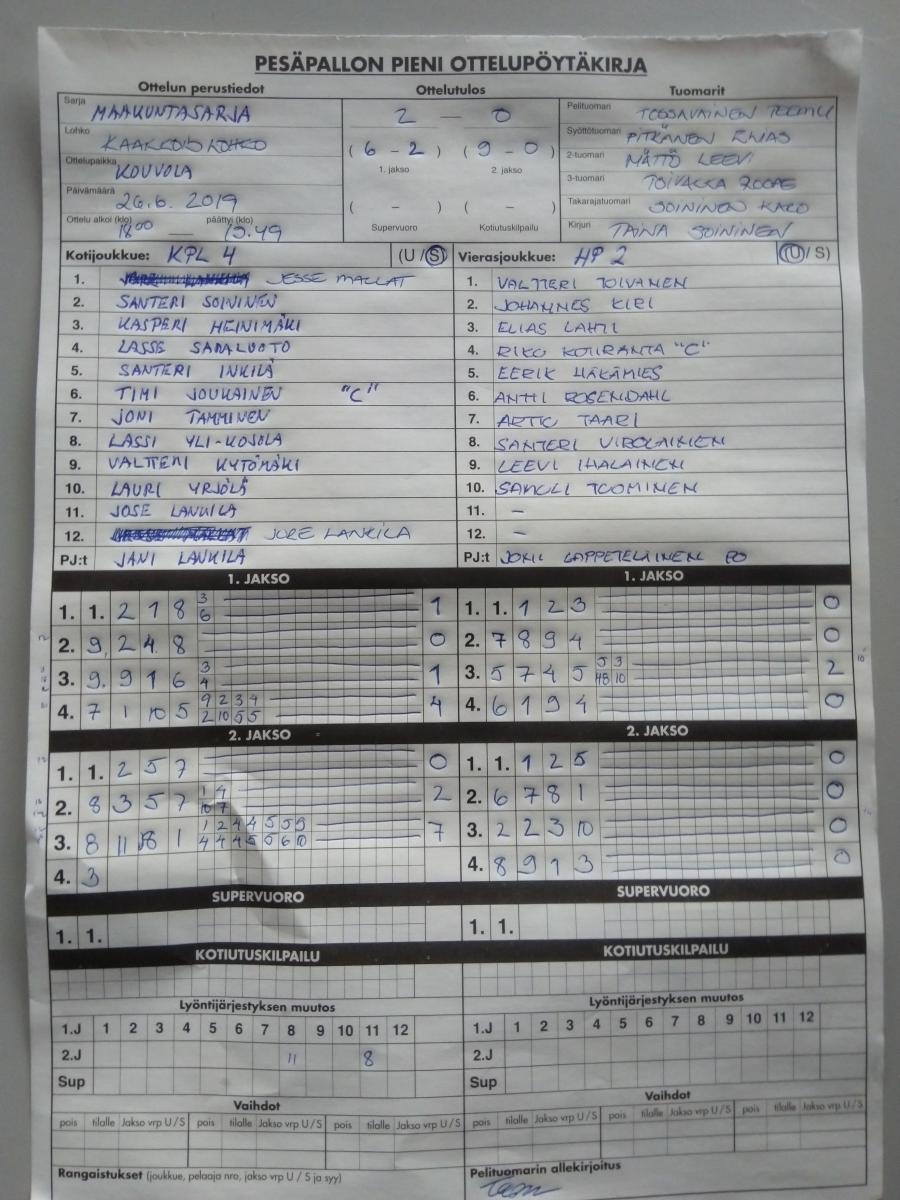 PESÄPALLON PIENI OTTELUPÖYTÄKIRJA
Ottelun perustiedot Ottelutulos Tuomarit
Sarja MAAKUNTASARJA 2 — 0 Pelituomari TEEMU
Lohko KAAKKOISLOHKO (6 - 2) (9 - 0) Syöttötuomari PITKÄNEN ELIAS
Ottelupaikka KOUVOLA 1. jakso 2. jakso 2-tuomari MÄTTÖ LEEVI
Päivämäärä 26.6. 2019 3-tuomari TOIVAKKA ROOPE
( - ) ( - ) Takarajatuomari SOININEN
Ottelu alkoi (klo) 18.00 — päättyi (klo) 19.49 Supervuoro Kotiutuskilpailu Kirjuri TAINA SOININEN
Kotijoukkue: KPL 4 (U / S) Vierasjoukkue: HP 2 (U / S)
1. JESSE MALLAT 1. VALTTERI TOIVANEN
2. SANTERI SOININEN 2. JOHANNES KIRI
3. KASPERI HEINIMÄKI 3. ELIAS LAHTI
4. LASSE SAPALUOTO 4. RIKO KOTIRANTA "C"
5. SANTERI INKILÄ 5. EERIK HÄKÄMIES
6. TIMI JOUKAINEN "C" 6. ANTTI ROSENDAHL
7. JONI TAMMINEN 7. ARTTU TAARI
8. LASSI YLI-KOJOLA 8. SANTERI VIROLAINEN
9. VALTTERI KYTÖMÄKI 9. LEEVI IHALAINEN
10. LAURI YRJÖLÄ 10. SAMULI TUOMINEN
11. JOSE LANKILA 11. –
12. JORE LANKILA 12. –
PJ:t JANI LANKILA PJ:t JONI LAPPETELÄINEN PO
1. JAKSO 1. JAKSO
3
1. 1. 2 7 8 1 1. 1. 1 2 3 0
6
2. 9. 2 4 8 0 2. 7 8 9 4 0
3 5 3
3. 9. 9 1 6 1 3. 5 7 4 5 2
4 10
9 2 3 4
4. 7 1 10 5 4 4. 6 1 9 4 0
2 10 5 5
2. JAKSO 2. JAKSO
1. 1. 2 5 7 0 1. 1. 1 2 5 0
1 4
2. 8 3 5 7 2 2. 6 7 8 1 0
10 7
1 2 4 4 5 5 9
3. 8 11 1 7 3. 2 2 3 10 0
4 4 4 5 5 6 10
4. 3 4. 8 9 1 3 0
SUPERVUORO SUPERVUORO
1. 1. 1. 1.
KOTIUTUSKILPAILU KOTIUTUSKILPAILU
Lyöntijärjestyksen muutos Lyöntijärjestyksen muutos
1.J 1 2 3 4 5 6 7 8 9 10 11 12 1.J 1 2 3 4 5 6 7 8 9 10 11 12
2.J 11 8 2.J
Sup Sup
Vaihdot Vaihdot
pois tilalle Jakso vrp U / S pois tilalle Jakso vrp U / S pois tilalle Jakso vrp U / S pois tilalle Jakso vrp U / S pois tilalle Jakso vrp U / S pois tilalle Jakso vrp U / S
Rangaistukset (joukkue, pelaaja nro, jakso vrp U / S ja syy) Pelituomarin allekirjoitus